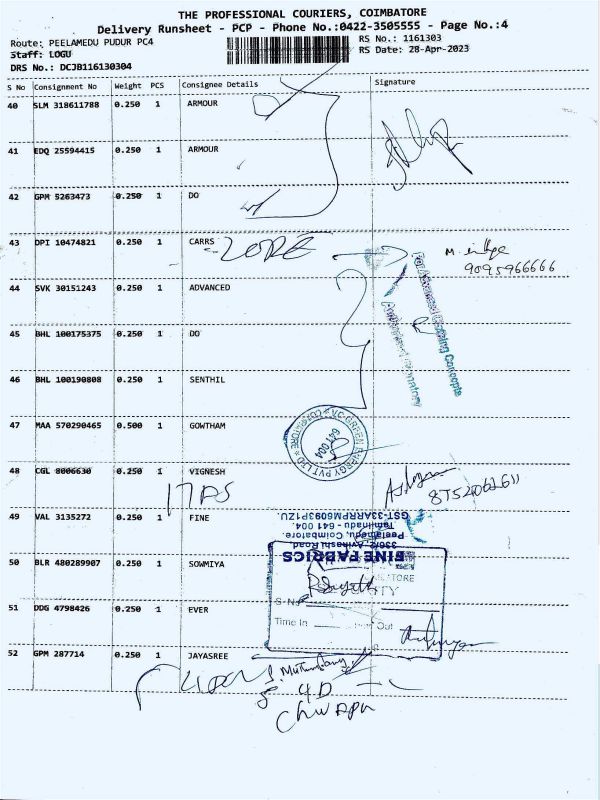 THE PROFESSIONAL COURIERS, COIMBATORE
Delivery Runsheet - PCP - Phone No.:0422-3505555 - Page No.:4
Route: PEELAMEDU PUDUR PC4
RS No.: 1161303
Staff: LOGU
RS Date: 28-Apr-2023
DRS No.: DCJB116130304
S No Consignment No Weight PCS Consignee Details Signature
40 SLM 318611788 0.250 1 ARMOUR
41 EDQ 25594415 0.250 1 ARMOUR
42 GPM 5263473 0.250 1 DO
43 DPI 10474821 0.250 1 CARRS
9095966666
44 SVK 30151243 0.250 1 ADVANCED
For Advanced Clothing Concepts
Authorised Signatory
45 BHL 100175375 0.250 1 DO
46 BHL 100190808 0.250 1 SENTHIL
47 MAA 570290465 0.500 1 GOWTHAM
641 004
48 CGL 8006630 0.250 1 VIGNESH
49 VAL 3135272 0.250 1 FINE
FINE FABRICS
Peelamedu, Coimbatore.
Tamilnadu - 641 004
50 BLR 480289907 0.250 1 SOWMIYA
51 DDG 4798426 0.250 1 EVER
Time In Out
52 GPM 287714 0.250 1 JAYASREE